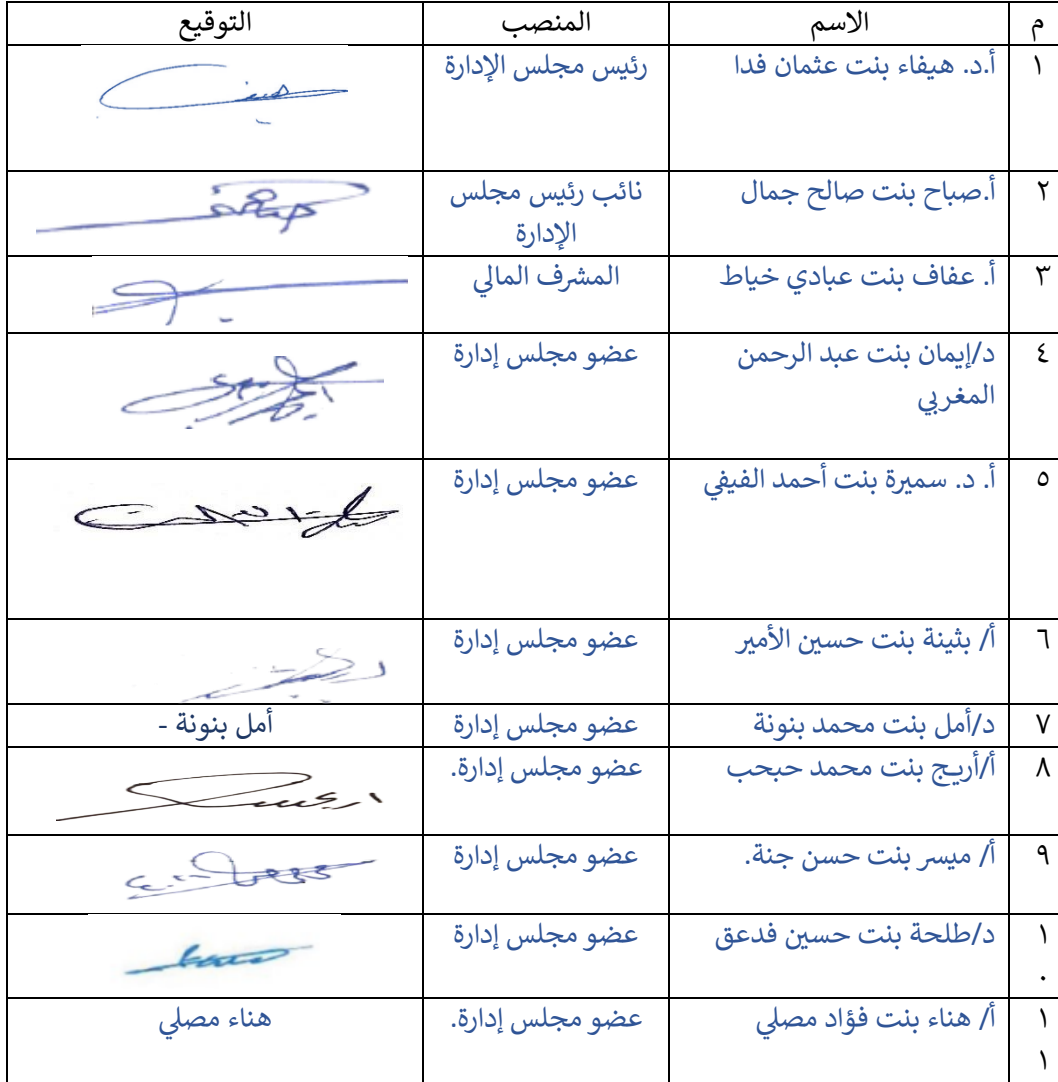 م الاسم المنصب التوقيع
١ أ.د. هيفاء بنت عثمان فدا رئيس مجلس الإدارة
٢ أ.صباح بنت صالح جمال نائب رئيس مجلس
الإدارة
٣ أ. عفاف بنت عبادي خياط المشرف المالي
٤ د/إيمان بنت عبد الرحمن عضو مجلس إدارة
المغربي
٥ أ. د. سميرة بنت أحمد الفيفي عضو مجلس إدارة
٦ أ/ بثينة بنت حسين الأمير عضو مجلس إدارة
٧ د/أمل بنت محمد بنونة عضو مجلس إدارة أمل بنونة -
٨ أ/أريج بنت محمد حبحب عضو مجلس إدارة.
٩ أ/ ميسر بنت حسن جنة. عضو مجلس إدارة
١ د/طلحة بنت حسين فدعق عضو مجلس إدارة
٠
١ أ/ هناء بنت فؤاد مصلي عضو مجلس إدارة. هناء مصلي
١